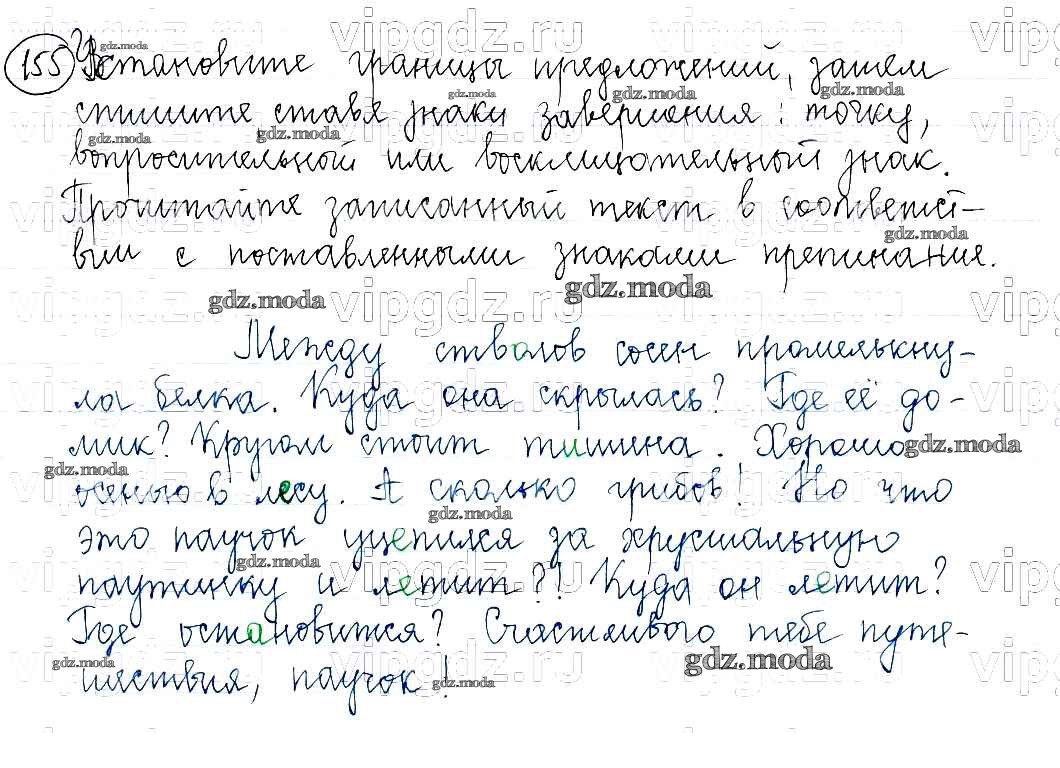 155 Установите границы предложений, затем
спишите ставя знаки завершения: точку,
вопросительный или восклицательный знак.
Прочитайте записанный текст в соответст-
вии с поставленными знаками препинания.
Между стволов сосен промелькну-
ла белка. Куда она скрылась? Где её до-
мик? Кругом стоит тишина. Хорошо
осенью в лесу. А сколько грибов! Но что
это паучок уцепился за хрустальную
паутинку и летит?! Куда он летит?
Где остановится? Счастливого тебе путе-
шествия, паучок!
gdz.moda
vipgdz.ru